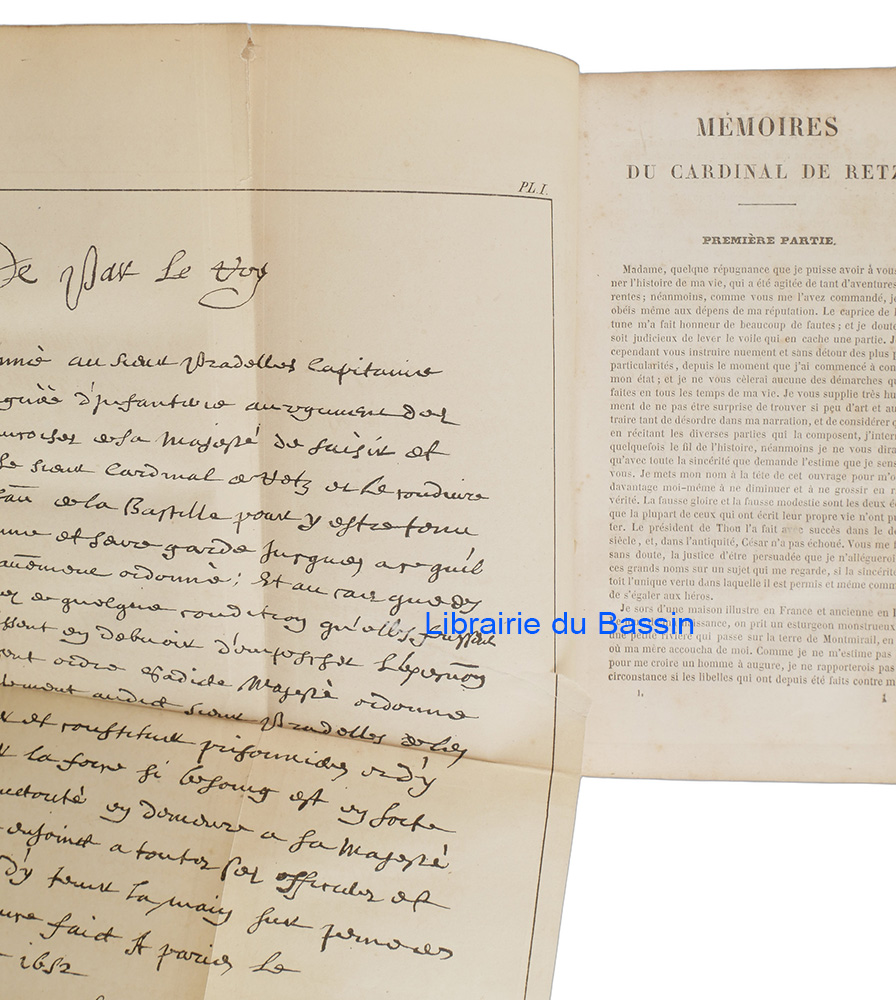 PL.I.
De Par Le Roy
au sieur Pradelles Capitaine
d'Infanterie au regiment des
de sa Majesté de saisir et
le sieur Cardinal de Retz et le conduire
de la Bastille pour y estre tenu
et seure garde jusques a ce quil
ordonné; Et au cas que
de quelque condition qu'elles fussent
en debvoir d'empescher l'execuon
ordre sadicte Majesté ordonne
audict sieur Pradelles de les
et constituer prisonniers et d'y
la force si besoing est en sorte
en demeure a sa Majesté
enjoinct a toutes ses officiers et
d'y tenir la main sur peine
faict A paris Le
1652
MÉMOIRES
DU CARDINAL DE RETZ
PREMIÈRE PARTIE.
Madame, quelque répugnance que je puisse avoir à vous
ner l'histoire de ma vie, qui a été agitée de tant d'aventures
rentes; néanmoins, comme vous me l'avez commandé, je
obéis même aux dépens de ma réputation. Le caprice de l
tune m'a fait honneur de beaucoup de fautes; et je doute
soit judicieux de lever le voile qui en cache une partie. J
cependant vous instruire nuement et sans détour des plus p
particularités, depuis le moment que j'ai commencé à con
mon état; et je ne vous cèlerai aucune des démarches qu
faites en tous les temps de ma vie. Je vous supplie très hu
ment de ne pas être surprise de trouver si peu d'art et au
traire tant de désordre dans ma narration, et de considérer q
en récitant les diverses parties qui la composent, j'inter
quelquefois le fil de l'histoire, néanmoins je ne vous dira
qu'avec toute la sincérité que demande l'estime que je sens
vous. Je mets mon nom à la tête de cet ouvrage pour m'o
davantage moi-même à ne diminuer et à ne grossir en r
vérité. La fausse gloire et la fausse modestie sont les deux é
que la plupart de ceux qui ont écrit leur propre vie n'ont p
ter. Le président de Thou l'a fait avec succès dans le de
siècle, et, dans l'antiquité, César n'a pas échoué. Vous me f
sans doute, la justice d'être persuadée que je n'alléguerois
ces grands noms sur un sujet qui me regarde, si la sincérité
toit l'unique vertu dans laquelle il est permis et même comm
de s'égaler aux héros.
Je sors d'une maison illustre en France et ancienne en I
naissance, on prit un esturgeon monstrueux
une petite rivière qui passe sur la terre de Montmirail, en
où ma mère accoucha de moi. Comme je ne m'estime pas
pour me croire un homme à augure, je ne rapporterois pas
circonstance si les libelles qui ont depuis été faits contre m
I. 1
Librairie du Bassin